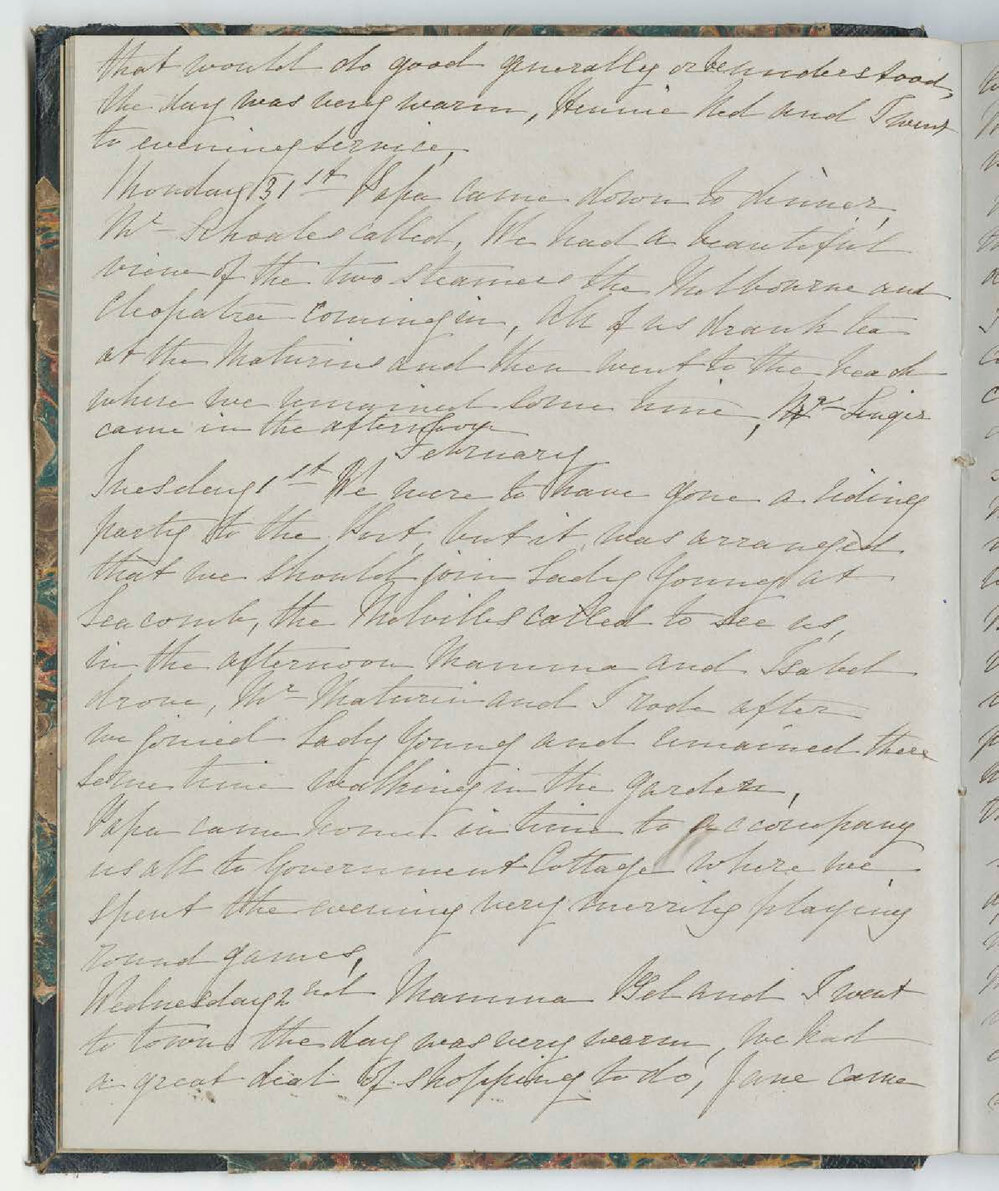 that would do good generally or be understood,
the day was very warm, Hennie Ned and I went
to evening service,
Monday 31st Papa came down to dinner,
Mr Schoales called, We had a beautiful
view of the two steamers the Melbourne and
Cleopatra coming in, All of us drank tea
at the Maturins and then went to the beach
where we remained some time, Mr Singer
came in the afternoon
February
Tuesday 1st We were to have gone a riding
party to the Port, but it was arranged
that we should join Lady Young at
Seacomb, the Melvilles called to see us,
in the afternoon Mamma and Isabel
drove, Mr Maturin and I rode after
we joined Lady Young and remained there
some time walking in the garden,
Papa came home in time to accompany
us all to Government Cottage where we
spent the evening very merrily playing
round games,
Wednesday 2nd Mamma and I went
to town the day was very warm, we had
a great deal of shopping to do, Jane came